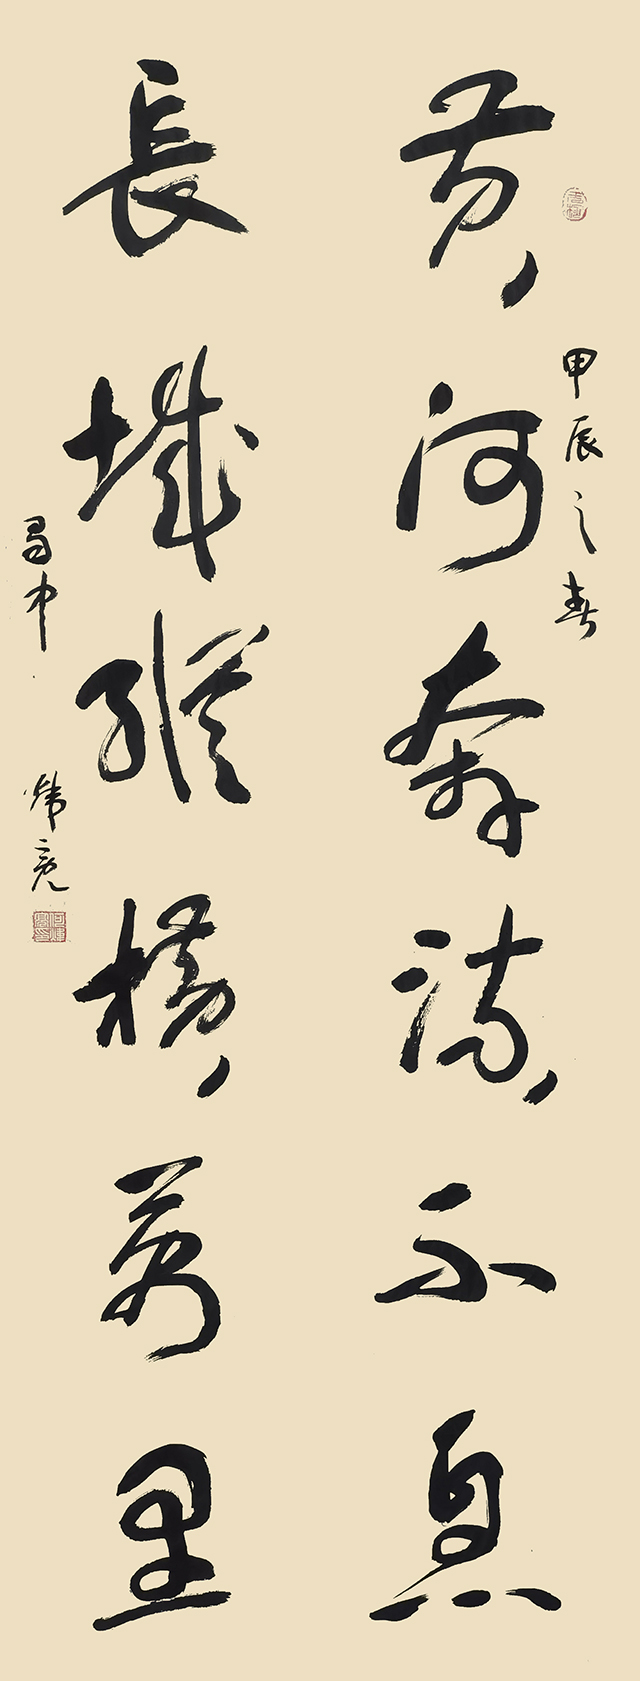 黄河奔流不息
長城縱橫萬里
甲辰之春
蜀中
煒亮